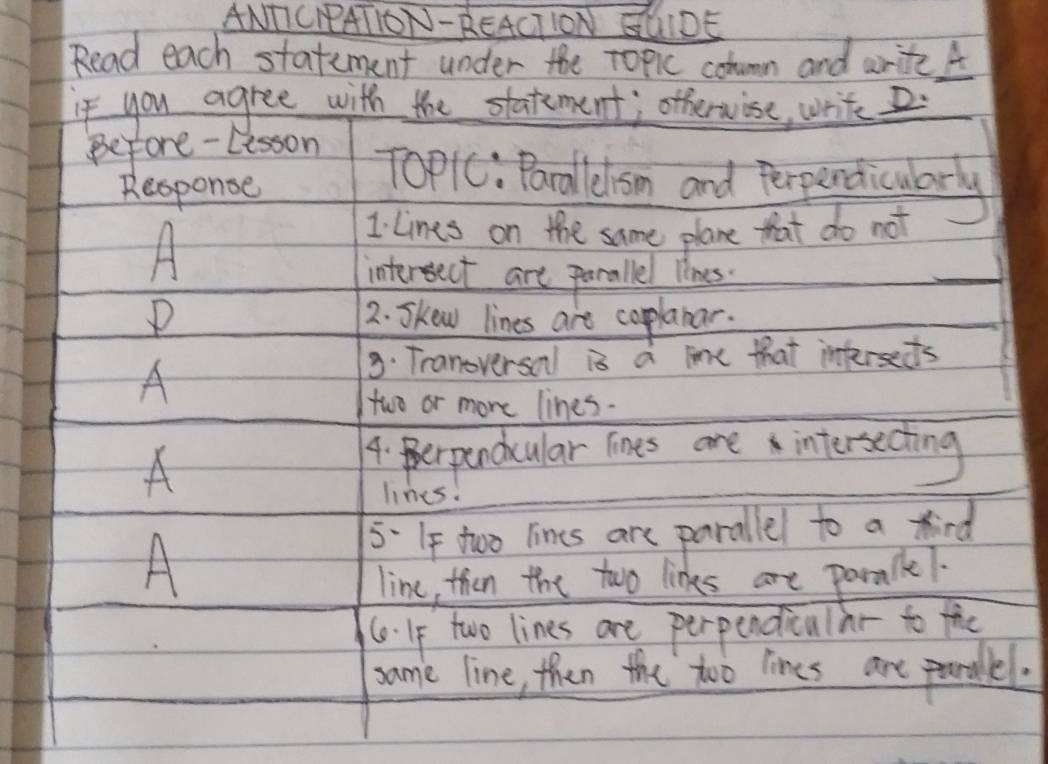 ANTICIPATION-REACTION GUIDE
Read each statement under the TOPIC column and write A
if you agree with the statement; otherwise, write D.
Before-Lesson
Response
TOPIC: Parallelism and Perpendicularly
A
1. Lines on the same plane that do not
intersect are parallel lines.
D
2. Skew lines are coplanar.
A
3. Transversal is a line that intersects
two or more lines.
A
4. Perpendicular lines are intersecting
lines.
A
5. If two lines are parallel to a third
line, then the two lines are parallel.
6. If two lines are perpendicular to the
same line, then the two lines are parallel.